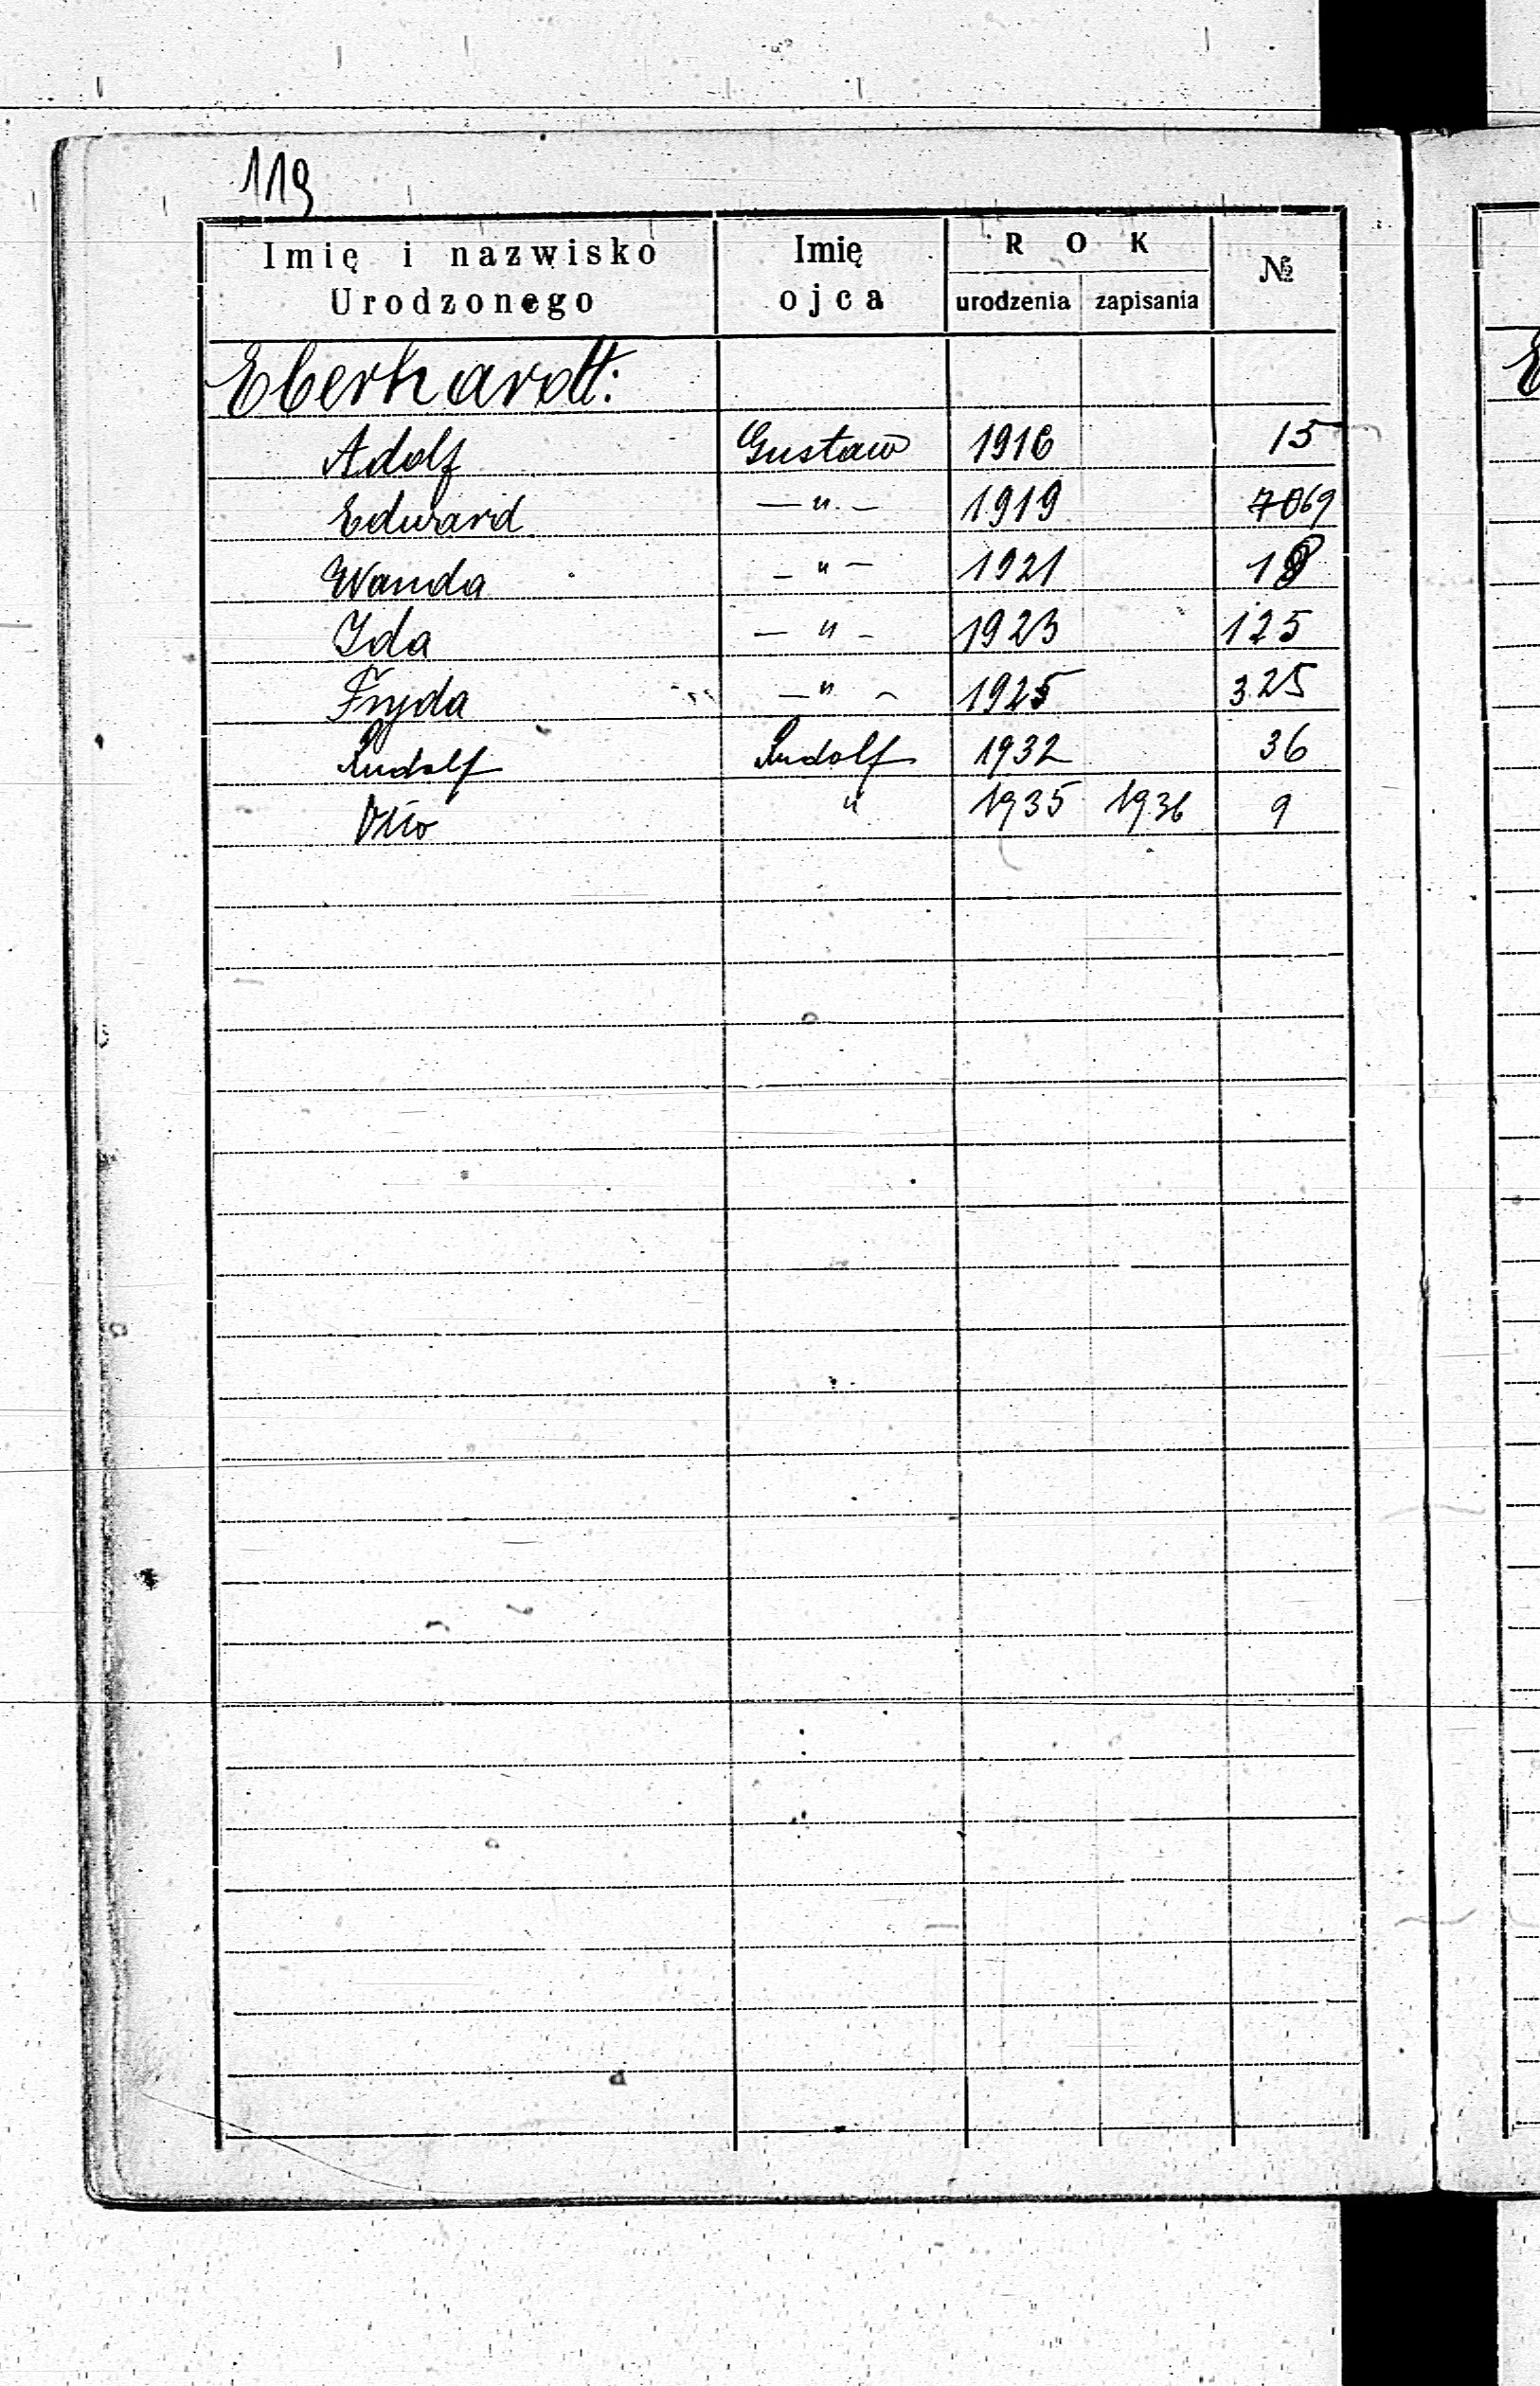 119
Imię i nazwisko Urodzonego Imię ojca R O K urodzenia zapisania №
Eberhardt:
Adolf Gustaw 1916 15
Edward —"— 1919 69
Wanda —"— 1921
Ida —"— 1923 125
Fryda —"— 1925 325
Rudolf Rudolf 1932 36
Otto " 1935 1936 9